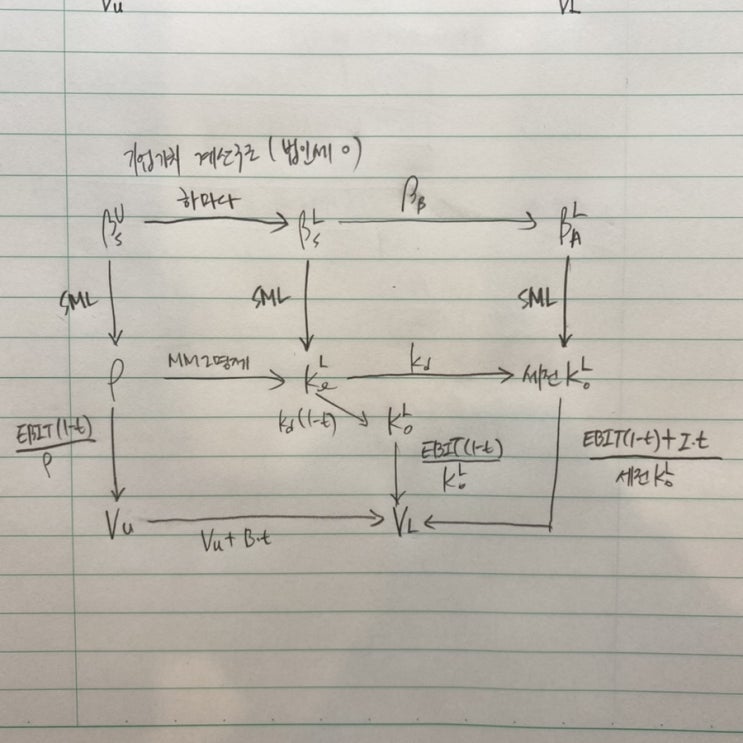 Vu VL
기업가치 계산구조 (법인세 O)
하마다 β_B
β_S^U β_S^L β_A^L
SML SML SML
MM2명제 kd
ρ Ke^L 세전 K₀^L
kd(1-t) K₀^L
EBIT(1-t)/ρ EBIT(1-t)/K₀^L EBIT(1-t)+I·t/세전 K₀^L
Vu VL
Vu+B·t